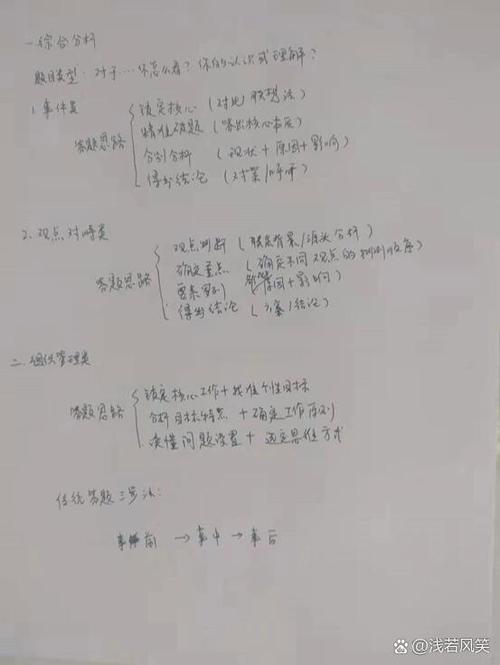 一.综合分析
题目类型：对于…你怎么看？你的认识或理解？
1.事件类
锁定核心（对比联想法）
精准破题（答出核心本质）
答题思路
分别分析（现状+原因+影响）
得出结论（对策/呼吁）
2.观点对峙类
观点判断（联系背景/源头分析）
确定重点（确定不同观点的
答题思路
要素罗列（原因+影响）
得出结论（方案/结论）
二.组织管理类
锁定核心工作+找准个性目标
答题思路
分析目标特点+确定工作原则
读懂问题设置+选定思维方式
传统答题三步法：
事前→事中→事后
浅若风笑